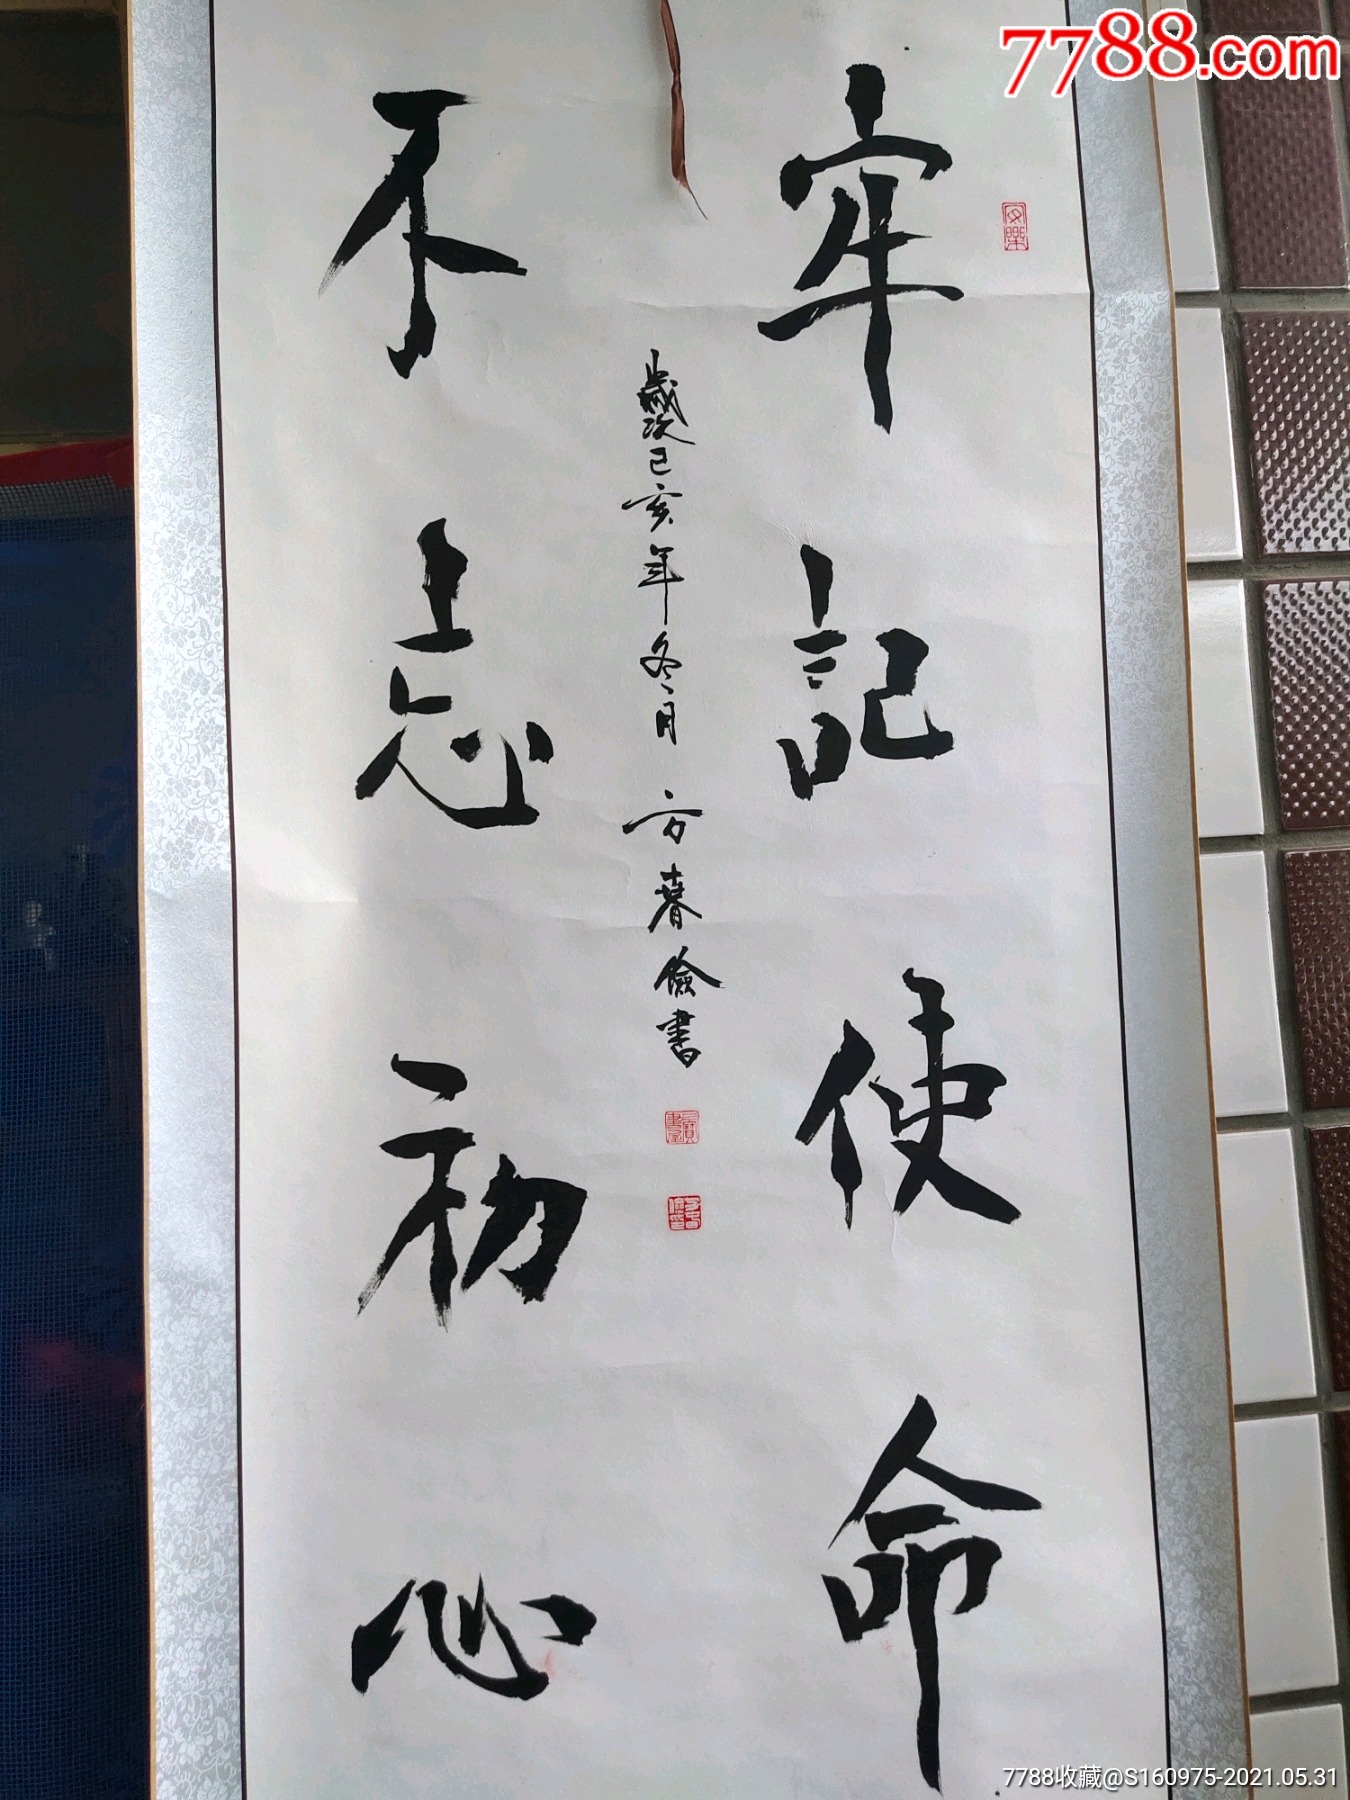 7788.com
牢記使命
歲次己亥年冬月 方春儉書
不忘初心
7788收藏@S160975-2021.05.31